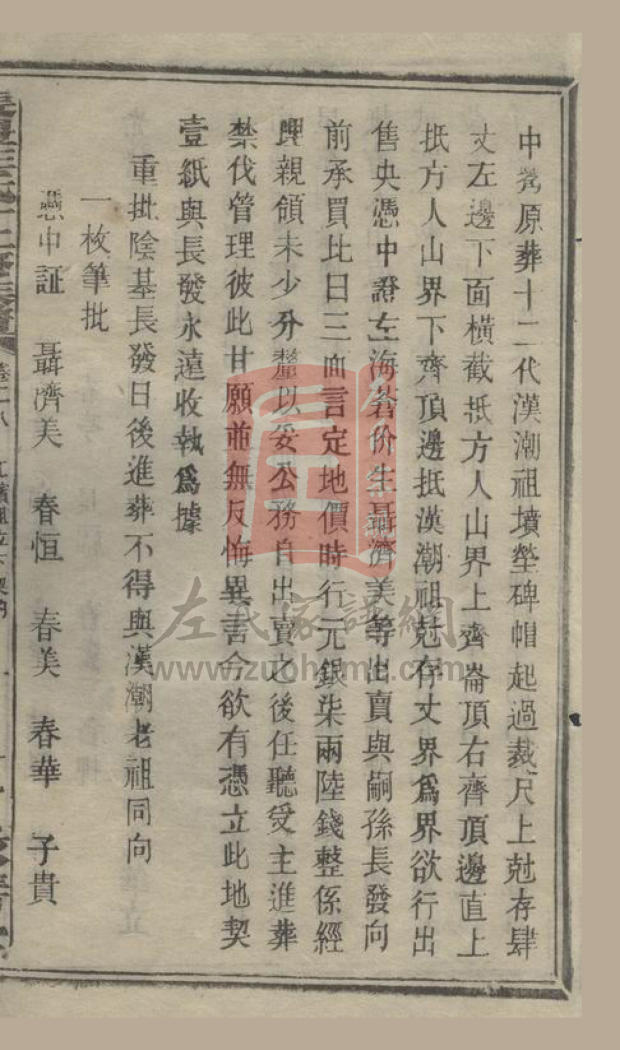 中嵩原葬十二代漢潮祖墳塋碑帽起過裁尺上尅存肆
丈左邊下面橫截抵方人山界上齊崙頂右齊頂邊直上
抵方人山界下齊頂邊抵漢潮祖尅存丈界爲界欲行出
售央憑中證左海荅价生聶濟美等出賣與嗣孫長發向
前承買比日三面言定地價時行元銀柒兩陸錢整係經
興親領未少分釐以妥公務自出賣之後任聽受主進葬
禁伐管理彼此甘願並無反悔異言今欲有憑立此地契
壹紙與長發永遠收執爲據
重批陰基長發日後進葬不得與漢潮老祖同向
一枚筆批
憑中証 聶濟美 春恒 春美 春華 子貴
左氏家譜網
www.zuohome.com